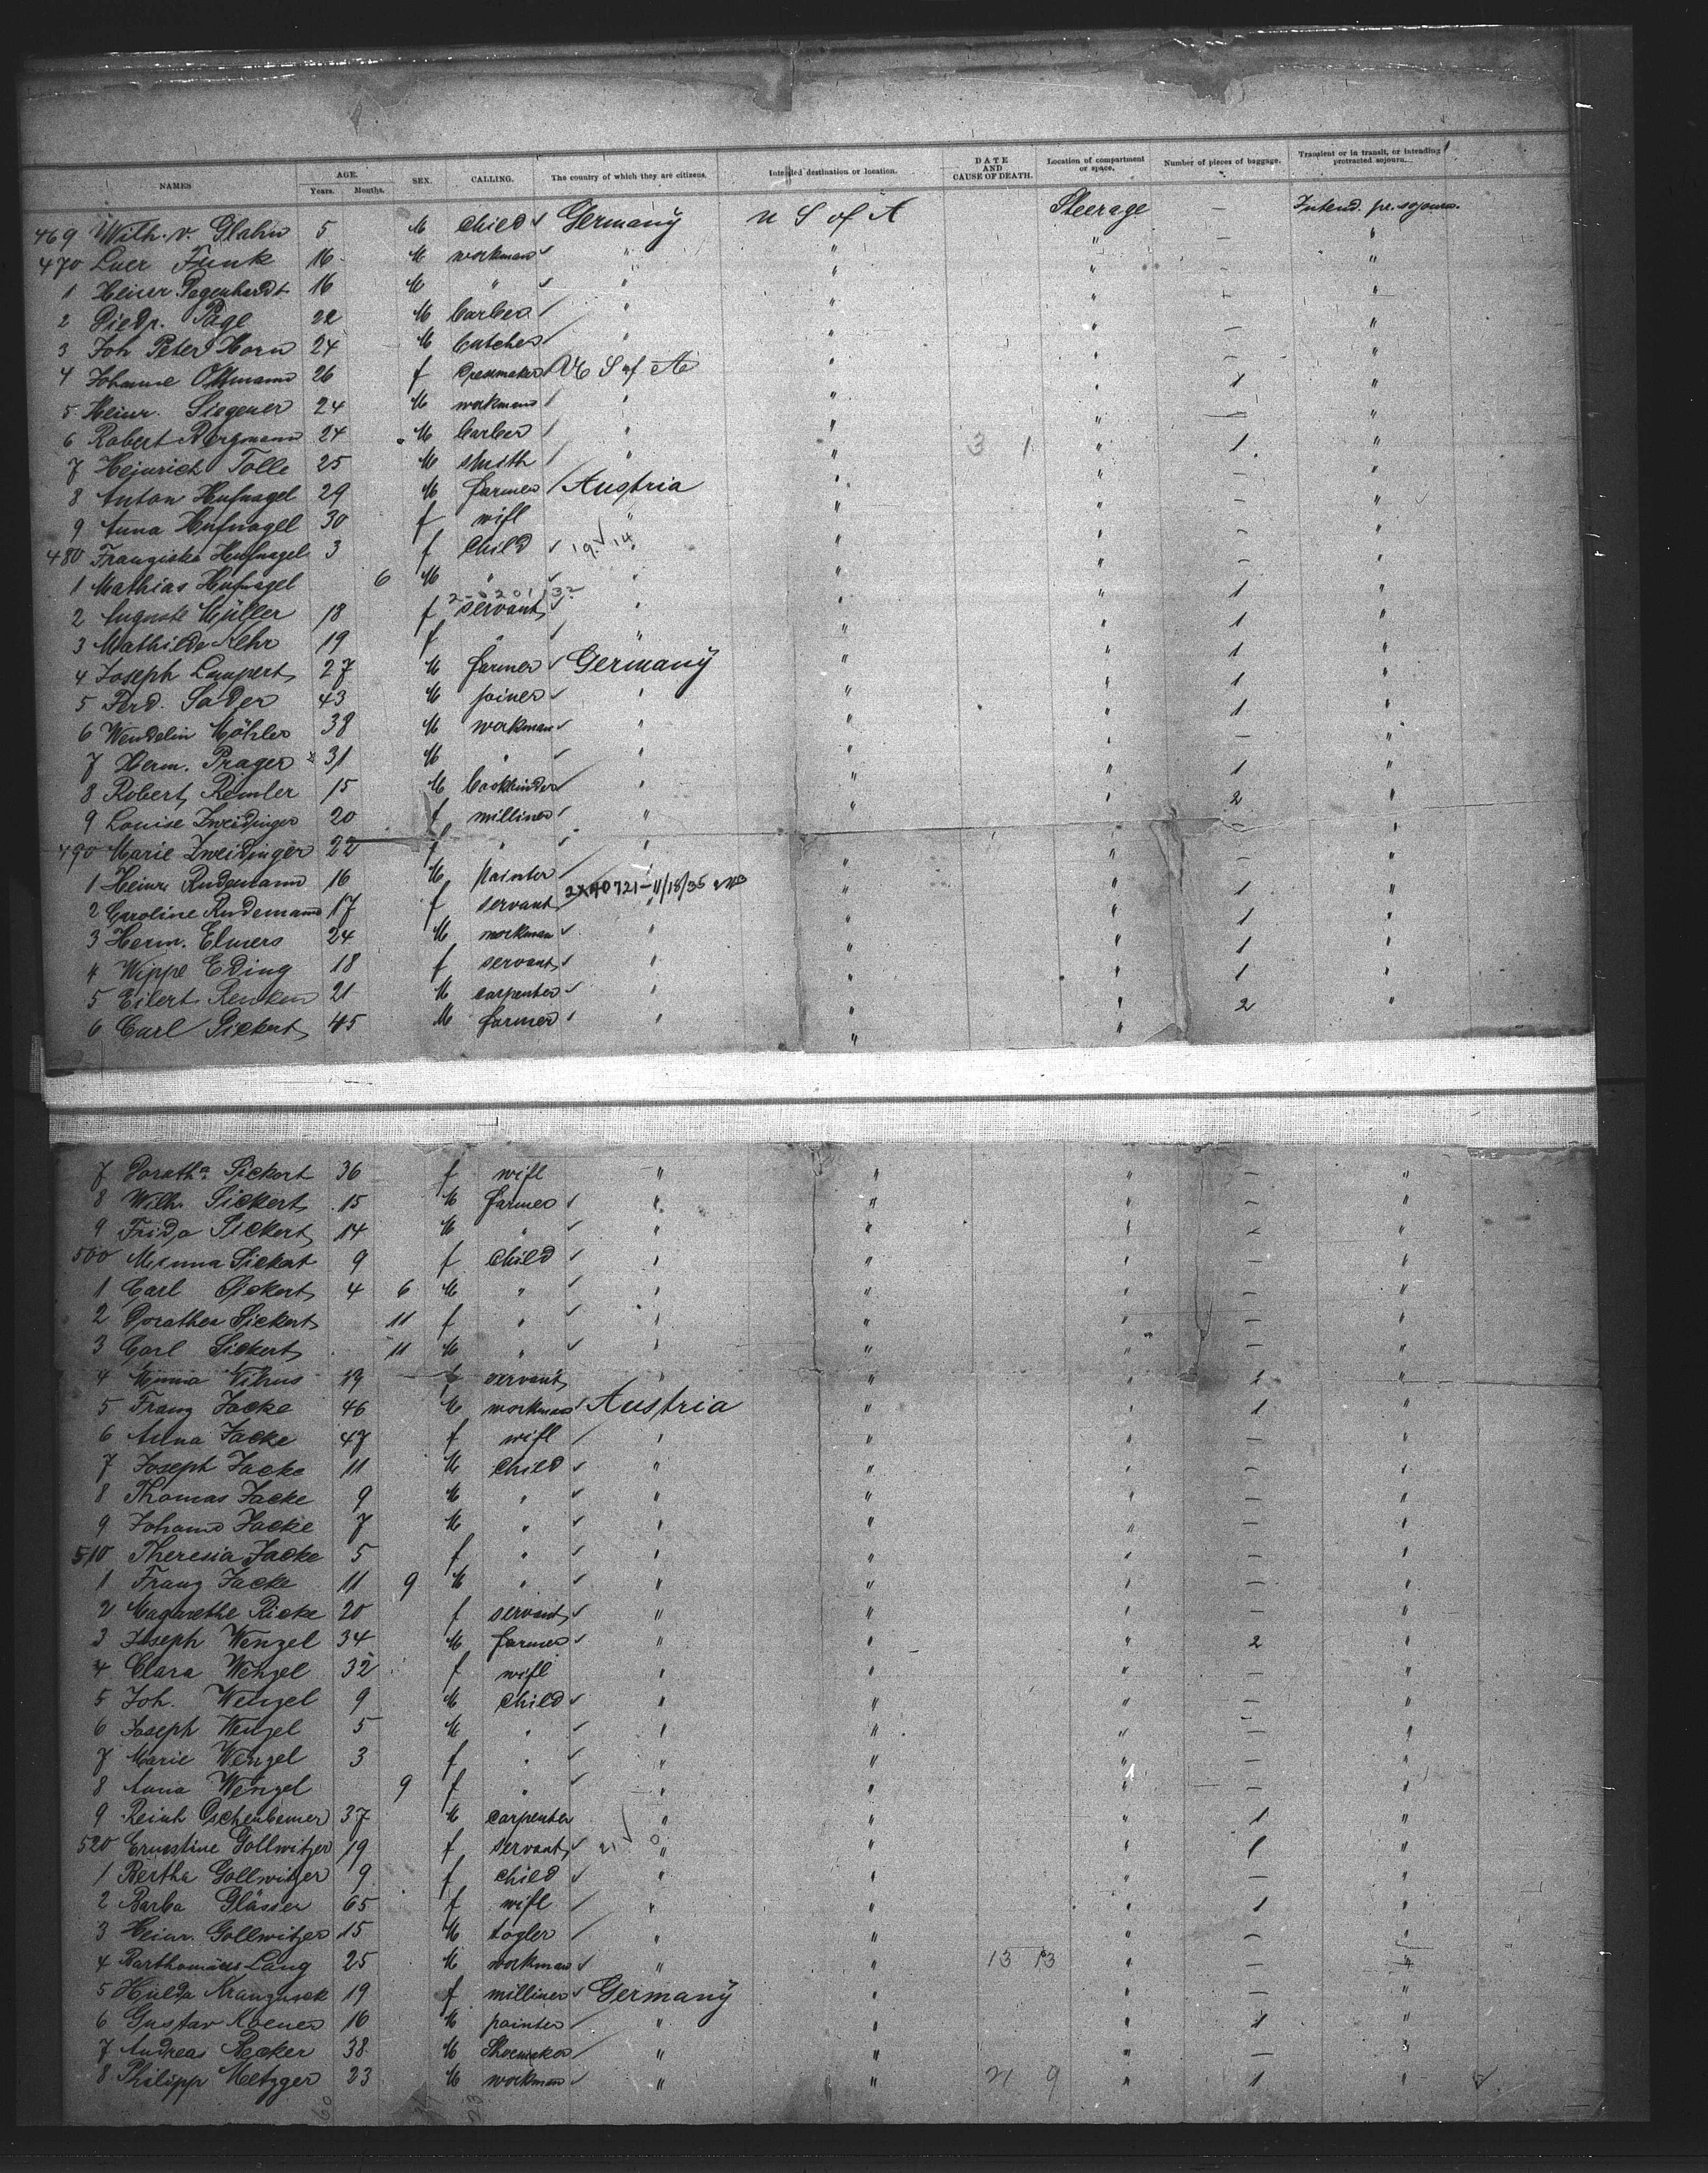 NAMES AGE. Years. Months. SEX. CALLING. The country of which they are citizens. Intended destination or location. DATE AND CAUSE OF DEATH. Location of compartment or space. Number of pieces of baggage. Transient or in transit, or intending protracted sojourn.
469 Wilh. v. Glahn 5 M Child Germany U S of A Steerage — Intend. pr. sojourn.
470 Luer Funk 16 M workman " " " — "
1 Heinr. Pagenhardt 16 M " " " " — "
2 Diedr. Page 22 M barber " " " - "
3 Joh Peter Horn 24 M butcher " " " — "
4 Johanne Ottmann 26 f dressmaker U S of A " " — "
5 Heinr. Siegener 24 M workman " " " 1 "
6 Robert Bergmann 24 M barber " " " — "
7 Heinrich Tolle 25 M smith " " 3 1 " 1 "
8 Anton Hufnagel 29 M farmer Austria " " — "
9 Anna Hufnagel 30 f wife " " " — "
480 Franziska Hufnagel 3 f Child " " " — "
1 Mathias Hufnagel 6 M " " " " — "
2 Auguste Müller 18 f servant " " " 1 "
3 Mathilde Kehr 19 f " " " " 1 "
4 Joseph Lampert 27 M farmer Germany " " 1 "
5 Ferd. Sader 43 M joiner " " " 1 "
6 Wendelin Möhler 38 M workman " " " 1 "
7 Herm. Prager 31 M " " " " — "
8 Robert Remler 15 M bookbinder " " " 1 "
9 Louise Zweidinger 20 f milliner " " " 2 "
490 Marie Zweidinger 22 f " " " " — "
1 Heinr. Rudemann 16 M painter " " " — "
2 Caroline Rudemann 17 f servant 2X40721-11/18/35 " " 1 "
3 Herm. Elmers 24 M workman " " " 1 "
4 Wippe Eding 18 f servant " " " 1 "
5 Eilert Renken 21 M carpenter " " " 1 "
6 Carl Sickert 45 M farmer " " " 2 "
7 Doroth.a Sickert 36 f wife " " " — "
8 Wilh. Sickert 15 M farmer " " " — "
9 Frida Sickert 14 M " " " " — "
500 Minna Sickert 9 f Child " " " — "
1 Carl Sickert 4 6 M " " " " — "
2 Dorothea Sickert 11 f " " " " — "
3 Carl Sickert 11 M " " " " — "
4 Minna 19 f servant " " " 1 "
5 Franz Jacke 46 M workman Austria " " 1 "
6 Anna Jacke 47 f wife " " " — "
7 Joseph Jacke 11 M Child " " " — "
8 Thomas Jacke 9 M " " " " — "
9 Johann Jacke 7 M " " " " — "
510 Theresia Jacke 5 f " " " " — "
1 Franz Jacke 11 9 M " " " " — "
2 Magarethe Ricke 20 f servant " " " — "
3 Joseph Wenzel 34 M farmer " " " 2 "
4 Clara Wenzel 32 f wife " " " — "
5 Joh. Wenzel 9 M Child " " " — "
6 Joseph Wenzel 5 M " " " " — "
7 Marie Wenzel 3 f " " " " — "
8 Anna Wenzel 9 f " " " " — "
9 Reinh 37 M carpenter " " " 1 "
520 Ernestine Gollwitzer 19 f servant " " " 1 "
1 Bertha Gollwitzer 9 f child " " " — "
2 Barba Glässer 65 f wife " " " 1 "
3 Heinr. Gollwitzer 15 M togler " " " — "
4 Barthomäus Lang 25 M workman " " 13 13 " — "
5 Hulda 19 f milliner Germany " " — "
6 Gustav 16 M painter " " " 1 "
7 Andreas Recker 38 M Shoemaker " " " — "
8 Philipp Metzger 23 M workman " " 21 9 " 1 "